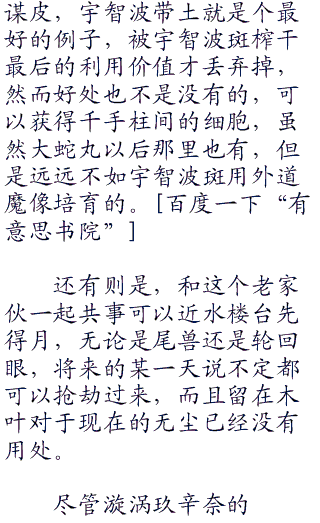 谋皮，宇智波带土就是个最
好的例子，被宇智波斑榨干
最后的利用价值才丢弃掉，
然而好处也不是没有的，可
以获得千手柱间的细胞，虽
然大蛇丸以后那里也有，但
是远远不如宇智波斑用外道
魔像培育的。[百度一下“有
意思书院”]
还有则是，和这个老家
伙一起共事可以近水楼台先
得月，无论是尾兽还是轮回
眼，将来的某一天说不定都
可以抢劫过来，而且留在木
叶对于现在的无尘已经没有
用处。
尽管漩涡玖辛奈的